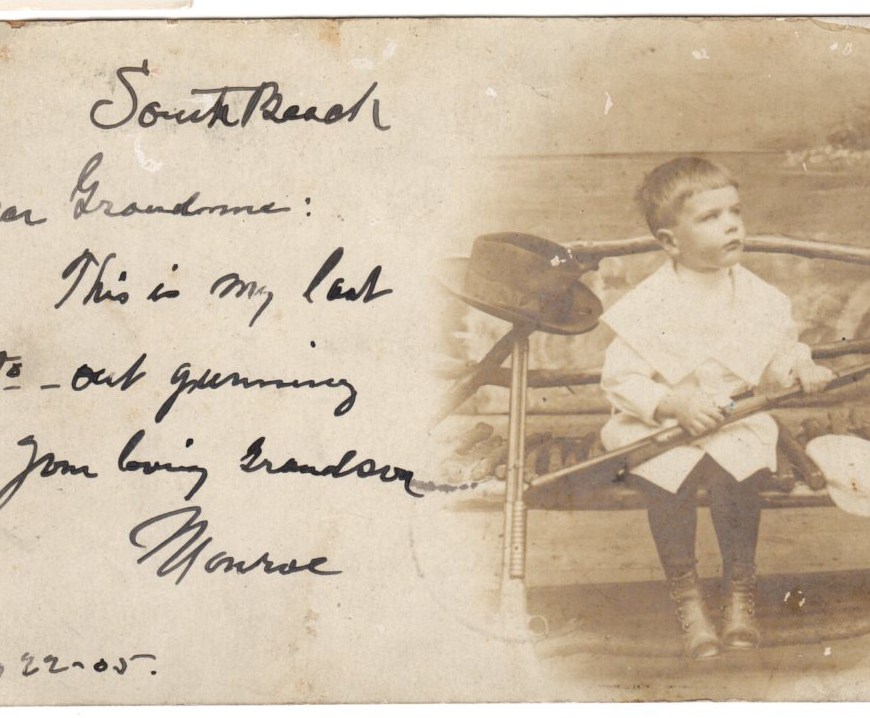 South Beach
ear Grandma:
This is my last
to - out gunning
Your loving Grandson
Monroe
22-05.